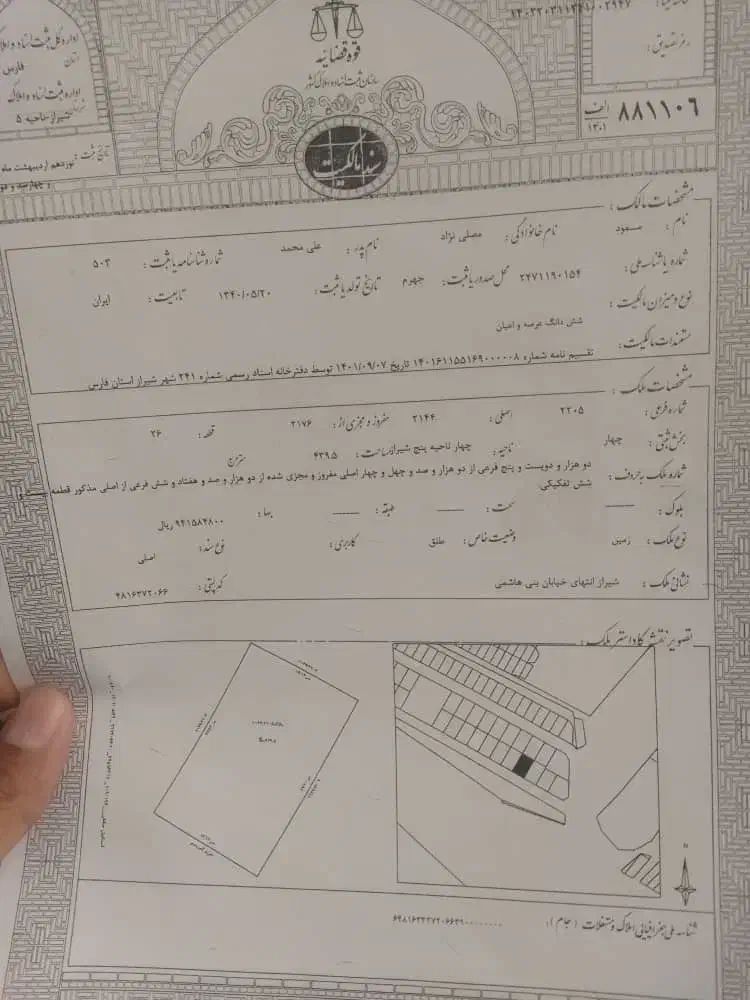 قوه قضائیه
سازمان ثبت اسناد و املاک کشور
سند مالکیت
اداره کل ثبت اسناد و املاک
استان فارس
اداره ثبت اسناد و املاک
شیراز-ناحیه ۵
تاریخ ثبت: نوزدهم اردیبهشت ماه
رمز تصدیق:
۸۸۱۱۰۶ الف ۱۴۰۱
مشخصات مالک:
نام: مسعود نام خانوادگی: مصلی نژاد نام پدر: علی محمد شماره شناسنامه یا ثبت: ۵۰۳
شماره یا شناسه ملی: ۲۴۷۱۱۹۰۱۵۴ محل صدور یا ثبت: جهرم تاریخ تولد یا ثبت: ۱۳۴۰/۰۵/۲۰ تابعیت: ایران
نوع و میزان مالکیت:
شش دانگ عرصه و اعیان
مستندات مالکیت:
تقسیم نامه شماره ۱۴۰۱۶۱۱۵۵۱۶۹۰۰۰۰۰۸ تاریخ ۱۴۰۱/۰۹/۰۷ توسط دفترخانه اسناد رسمی شماره ۲۴۱ شهر شیراز استان فارس
مشخصات ملک:
شماره فرعی: ۲۲۰۵ اصلی: ۲۱۴۴ مفروز و مجزی از: ۲۱۷۶ قطعه: ۲۶
بخش ثبتی: چهار ناحیه: چهار ناحیه پنج شیراز مساحت: ۴۳۹.۵ مترمربع
شماره ملک به حروف: دو هزار و دویست و پنج فرعی از دو هزار و صد و چهل و چهار اصلی مفروز و مجزی شده از دو هزار و صد و هفتاد و شش فرعی از اصلی مذکور قطعه بیست و
شش تفکیکی
بلوک: ـــــ سمت: ـــــ طبقه: ـــــ بها: ۹۴۱۵۸۴۸۰۰ ریال
نوع ملک: زمین وضعیت خاص: طلق کاربری: نوع سند: اصلی
نشانی ملک: شیراز انتهای خیابان بنی هاشمی کد پستی: ۴۸۱۶۳۷۲۰۶۶
تصویر نقشه کاداستر ملک:
N
شناسه ملی جغرافیایی املاک و مستغلات (جام):